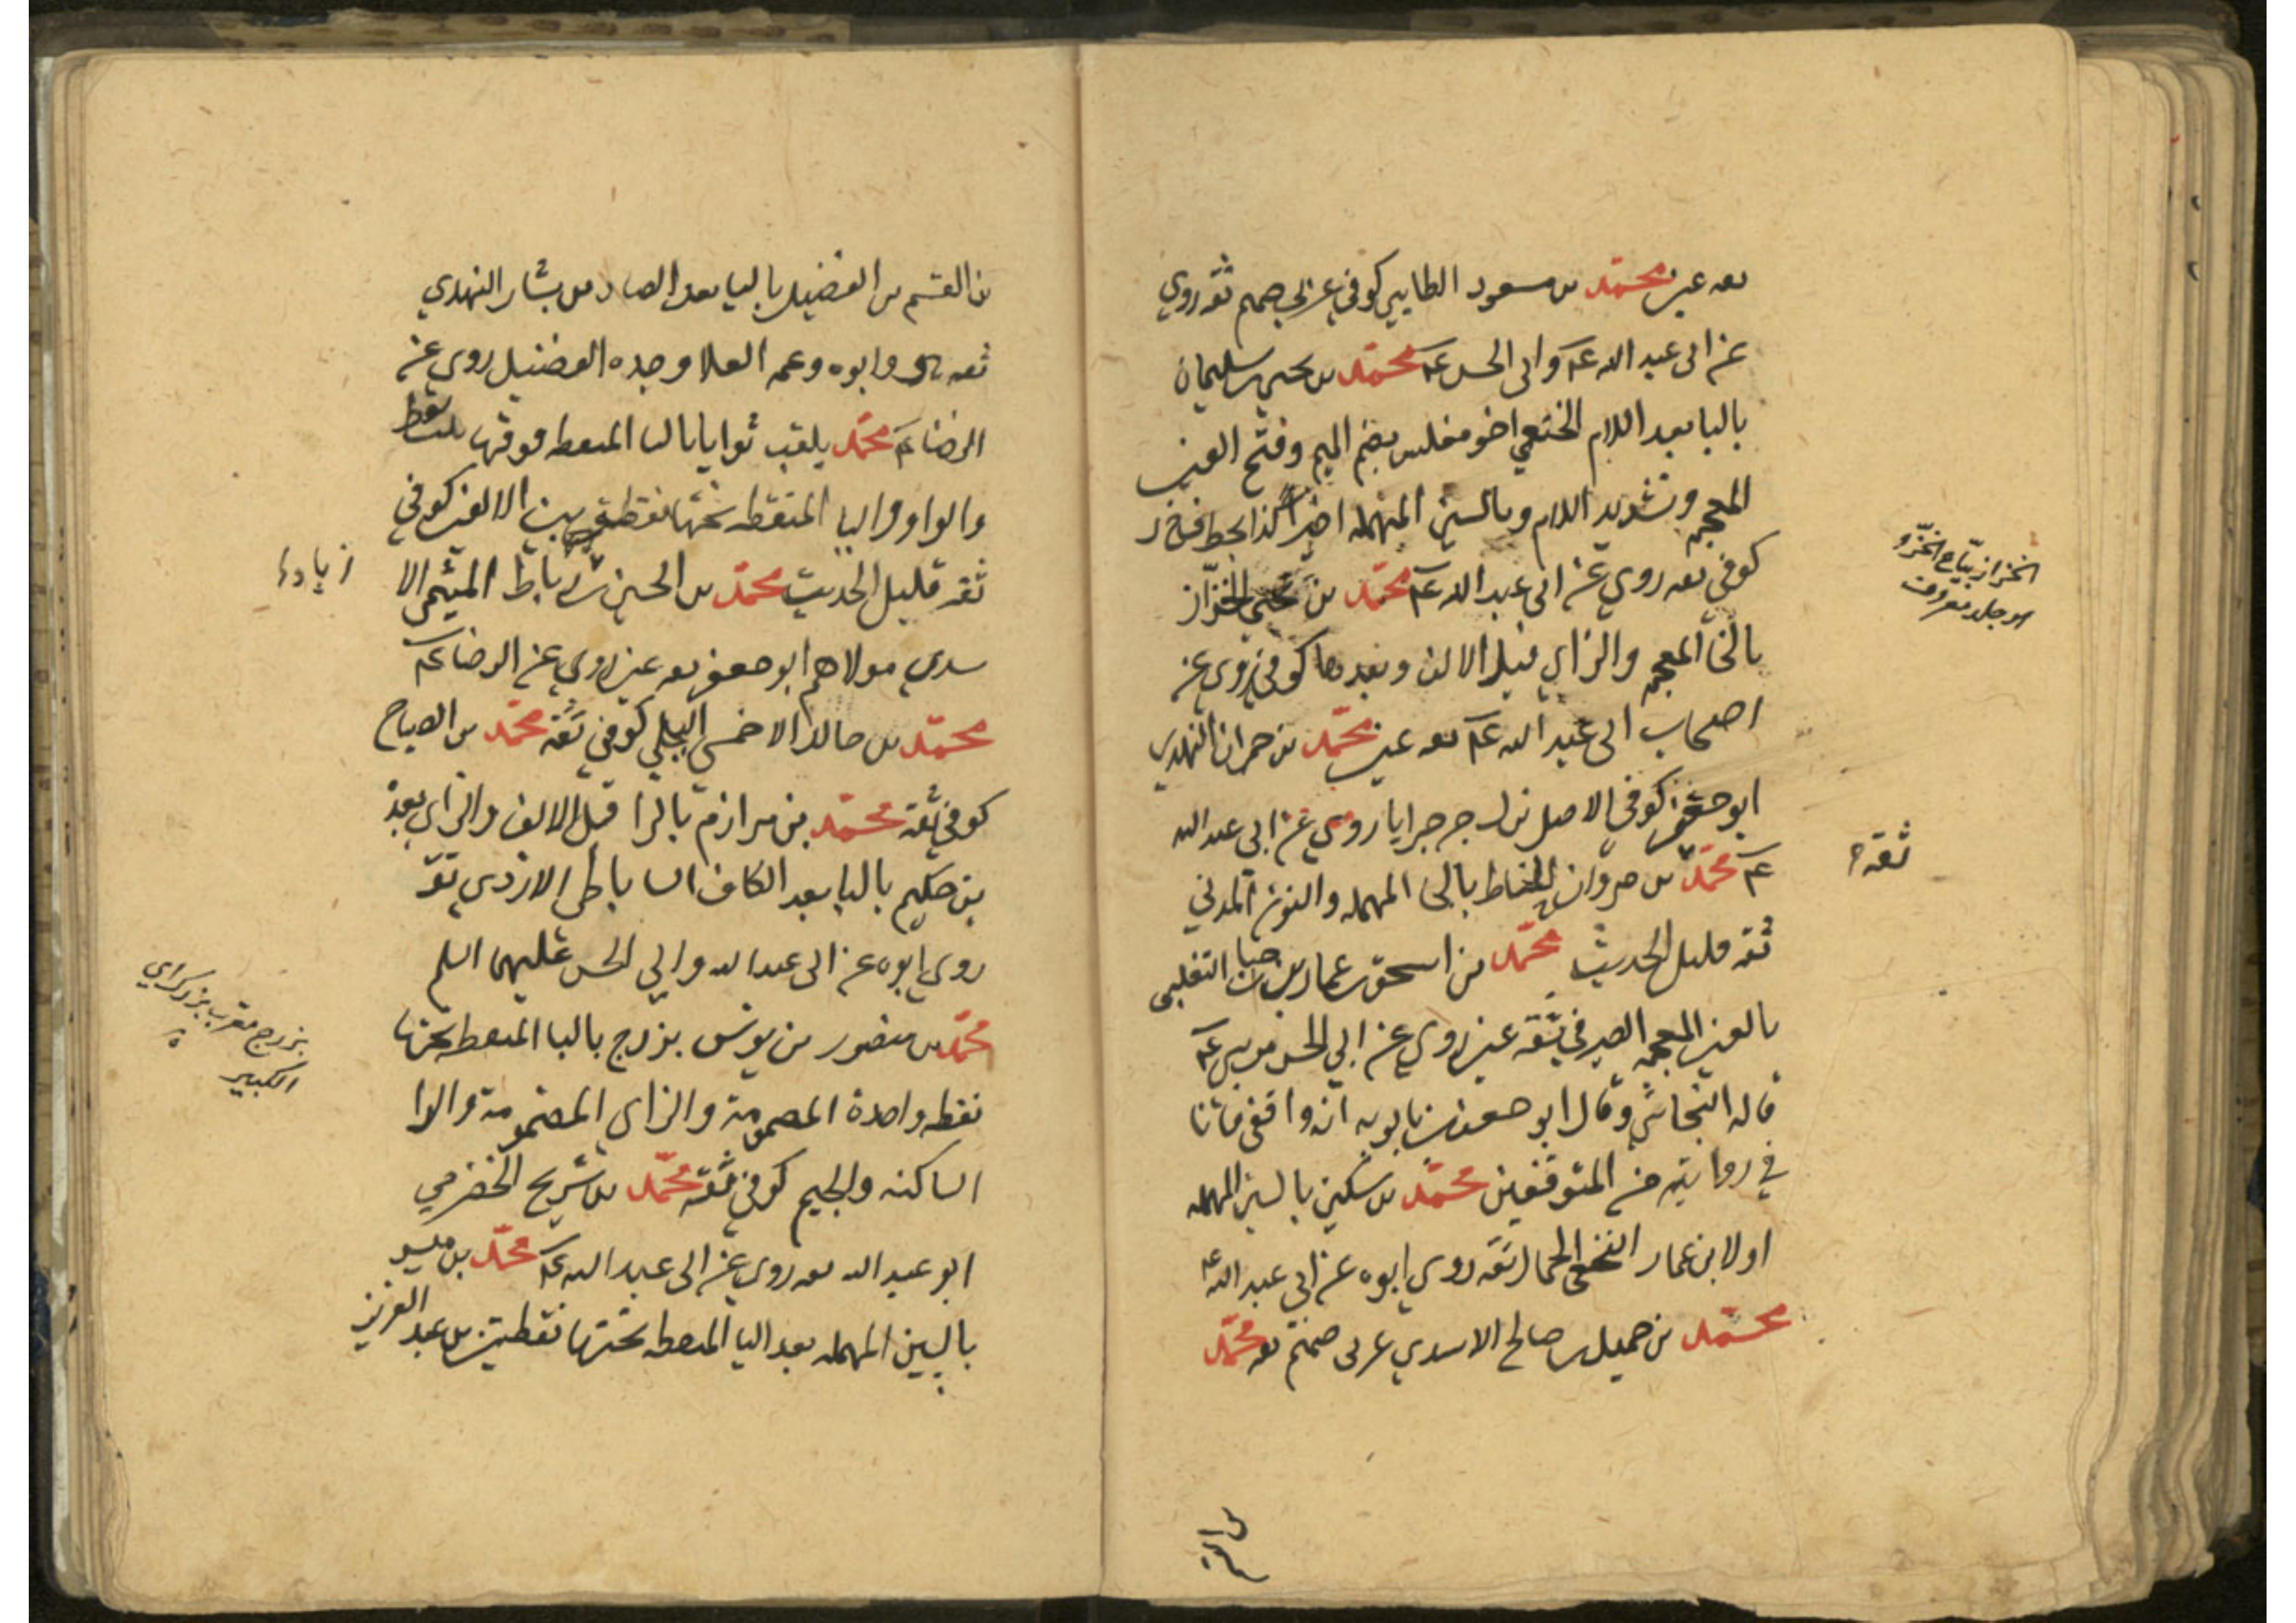 ثقه عين محمّد بن مسعود الطايي كوفي عربي صميم ثقه روي
عن ابى عبد الله عم وابى الحسن عم محمّد بن يحيى بن سليمان
باليا بعد اللام الخثعمي اخو مغلس بضم الميم وفتح الغين
المعجمه وتشديد اللام وبالسين المهمله اخيراً كذا بخط
كوفي ثقه روي عن ابي عبد الله عم محمّد بن يحيى الخزّاز
بالخا المعجمه والزاي قبل الالف وبعدها كوفي روى عن
اصحاب ابى عبد الله عم ثقه عين محمّد بن حمران النهدي
ابو جعفر كوفي الاصل نزل جرجرايا روي عن ابى عبد الله
عم محمّد بن مروان الحناط بالحا المهمله والنون المدني
ثقه قليل الحديث محمّد بن اسحق بن عمار بن حيان التغلبي
بالغين المعجمه الصيرفي ثقة عين روي عن ابي الحسن موسى عم
قاله النجاشي وقال ابو جعفر بن بابويه انه واقفي فانا
في روايته من المتوقفين محمّد بن سكين بالسين المهمله
اولا بن عمار النخعي الحمال ثقه روي ابوه عن ابي عبد الله عم
محمّد بن جميل بن صالح الاسدي عربى صميم ثقه محمّد
الخزاز بيّاع الخزّ و
هو جلد معروف
ثقة
بن القسم بن الفضيل باليا بعد الضاد بن يسار النهدي
ثقه هو وابوه وعمه العلا وجده الفضيل روي عن
الرضا عم محمّد يلقب ثوابا بالتا المنقطه فوقها
والواو واليا المنقطه تحتها نقطتين بين الالفين كوفي
ثقه قليل الحديث محمّد بن الحسن بن زياد الميثمي الا
سدي مولاهم ابو جعفر ثقه عين روي عن الرضا عم
محمّد بن خالد الاخمسي البجلي كوفي ثقه محمّد بن الصباح
كوفي ثقة محمّد بن مرازم بالرا قبل الالف والزاي بعد
بن حكيم باليا بعد الكاف الساباطي الازدي ثقه
روي ابوه عن ابى عبد الله وابي الحسن عليهما السلم
محمّد بن منصور بن يونس بزرج بالبا المنقطه تحتها
نقطه واحدة المضمومة والزاي المضمومة والرا
الساكنه والجيم كوفي ثقه محمّد بن شريح الحضرمي
ابو عبد الله ثقه روي عن ابى عبد الله عم محمّد بن ميسر
بالسين المهمله بعد اليا المنقطه تحتها نقطتين بن عبد العزيز
بزرج معرب بزرك اي
الكبير